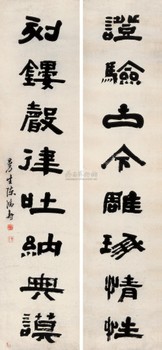 證驗古今雕琢情性
刻鏤聲律吐納典謨
曼生陳鴻壽